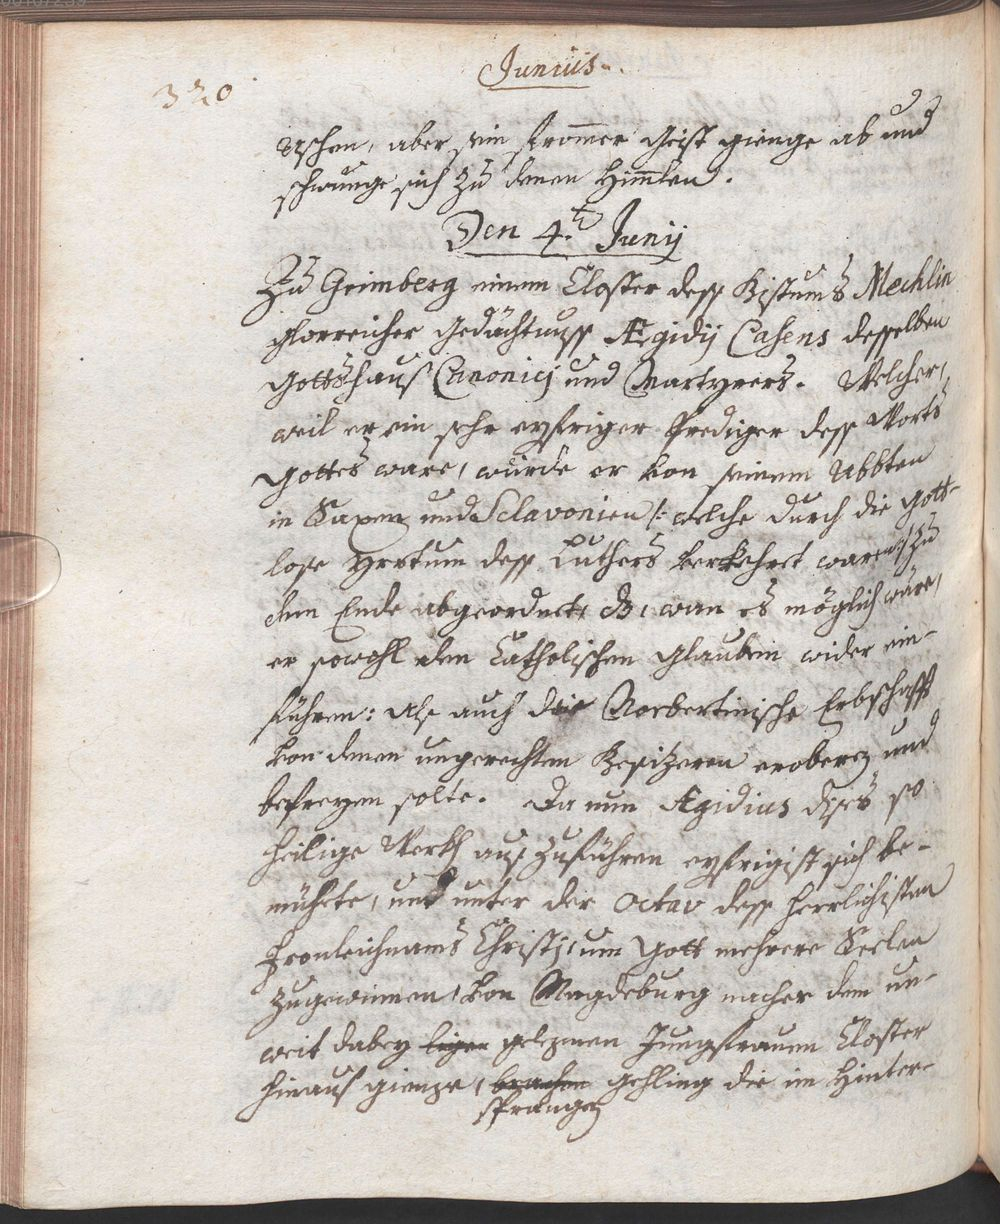 Junius.
320
Aschen, aber sein frommer Geist gienge ab und
schwunge sich zu denen Himmlen.
Den 4.t Junij
Zu Grimberg einem Closter dess Bistums Mechlin
glorreicher Gedächtnuss Ægidij Casens desselben
Gottshauß Canonici und Martyrers. Welcher,
weil er ein sehr eyfriger Prediger dess Worts
Gottes ware, wurde er von seinem Abbten
in Saxen und Sclavonien /: welche durch die Gott-
lose Yrrtum dess Luthers verkehret waren :/ zu
dem Ende abgeordnet, dz, wan es möglich wäre,
er sowohl den Catholischen Glauben wider ein-
führen: als auch die Norbertinische Erbschafft
von denen ungerechten Besitzeren eroberen und
befreyen solte. Da nun Ægidius dises so
heilige Werkh auszuführen eyfrigist sich be-
mühete, und unter der Octav dess herrlichisten
Fronleichnams Christi, um Gott mehrere Seelen
zugewinnen, von Magdeburg nacher dem un-
weit dabey liger gelegenen Jungfrauen Closter
hinaus gienge, brachen gehling die im Hinter-
sprangen